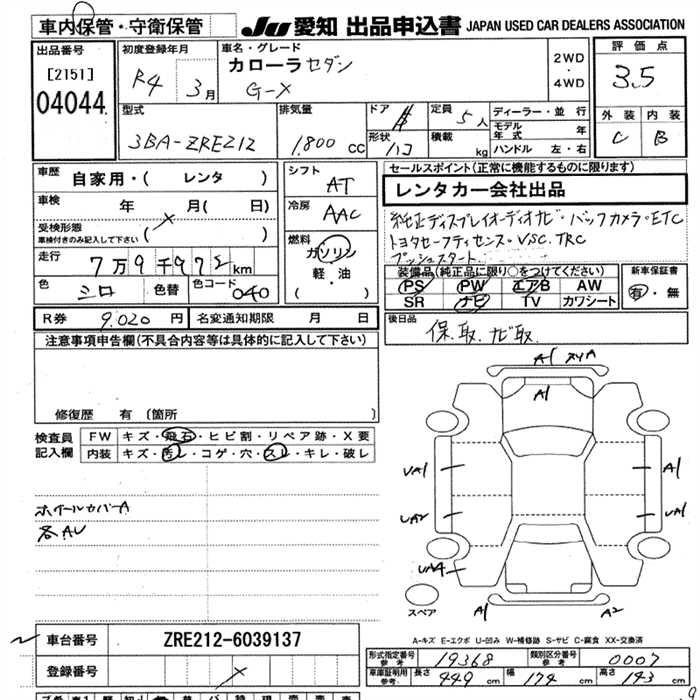 車内保管・守衛保管
JU 愛知 出品申込書 JAPAN USED CAR DEALERS ASSOCIATION
出品番号
[2151]
04044
初度登録年月
R4 3月
車名・グレード
カローラセダン
G-X
2WD
・
4WD
評価点
3.5
外装 内装
C B
型式
3BA-ZRE212
排気量
1,800 CC
ドア
4
形状
ハコ
定員
5人
積載
kg
ディーラー・並行
モデル年式 年
ハンドル 左・右
車歴
自家用・( レンタ )
車検 年 月( 日)
受検形態
車検付きのみ記入して下さい
( )
走行 7万9千972km
色 シロ 色替 色コード 040
シフト
AT
冷房
AAC
燃料
ガソリン
軽・油
( )
セールスポイント(正常に機能するものに限ります)
レンタカー会社出品
純正ディスプレイオーディオナビ・バックカメラ・ETC
トヨタセーフティセンス・VSC.TRC
プッシュスタート
装備品(純正品に限り○をつけてください)
PS PW エアB AW
SR ナビ TV カワシート
新車保証書
有・無
R券 9.020円 名変通知期限 月 日
後日品
保.取.ナビ取.
注意事項申告欄(不具合内容等は具体的に記入して下さい)
修復歴 有 〔箇所 〕
検査員記入欄
FW キズ・飛石・ヒビ割・リペア跡・X要
内装 キズ・汚レ・コゲ・穴・スレ・キレ・破レ
ホイールカバーA
各AU
A1
A1
UA1
A1
UA2
UA1
A1
A2
スペア
A-キズ E-エクボ U-凹み W-補修跡 S-サビ C-腐食 XX-交換済
車台番号 ZRE212-6039137
登録番号
形式指定番号 参考 19368 類別区分番号 参考 0007
車庫証明用 参考 長さ 449cm 幅 174cm 高さ 143cm